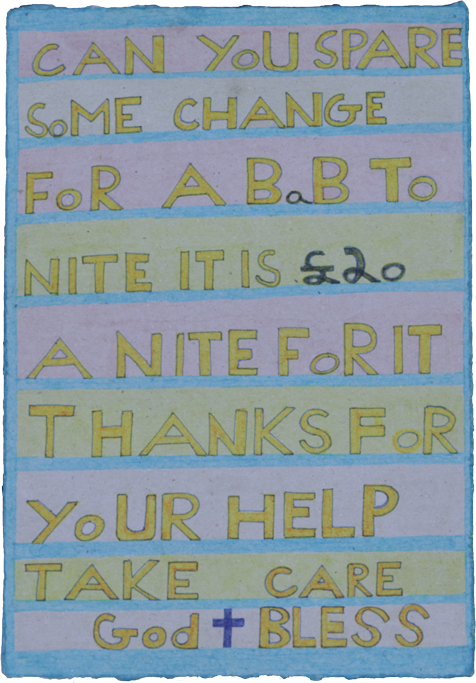 CAN YoU SPARE
SoME CHANGE
FoR A BaB To
NITE IT IS £20
A NITE FoR IT
THANKS FoR
YoUR HELP
TAKE CARE
God ✝ BLESS